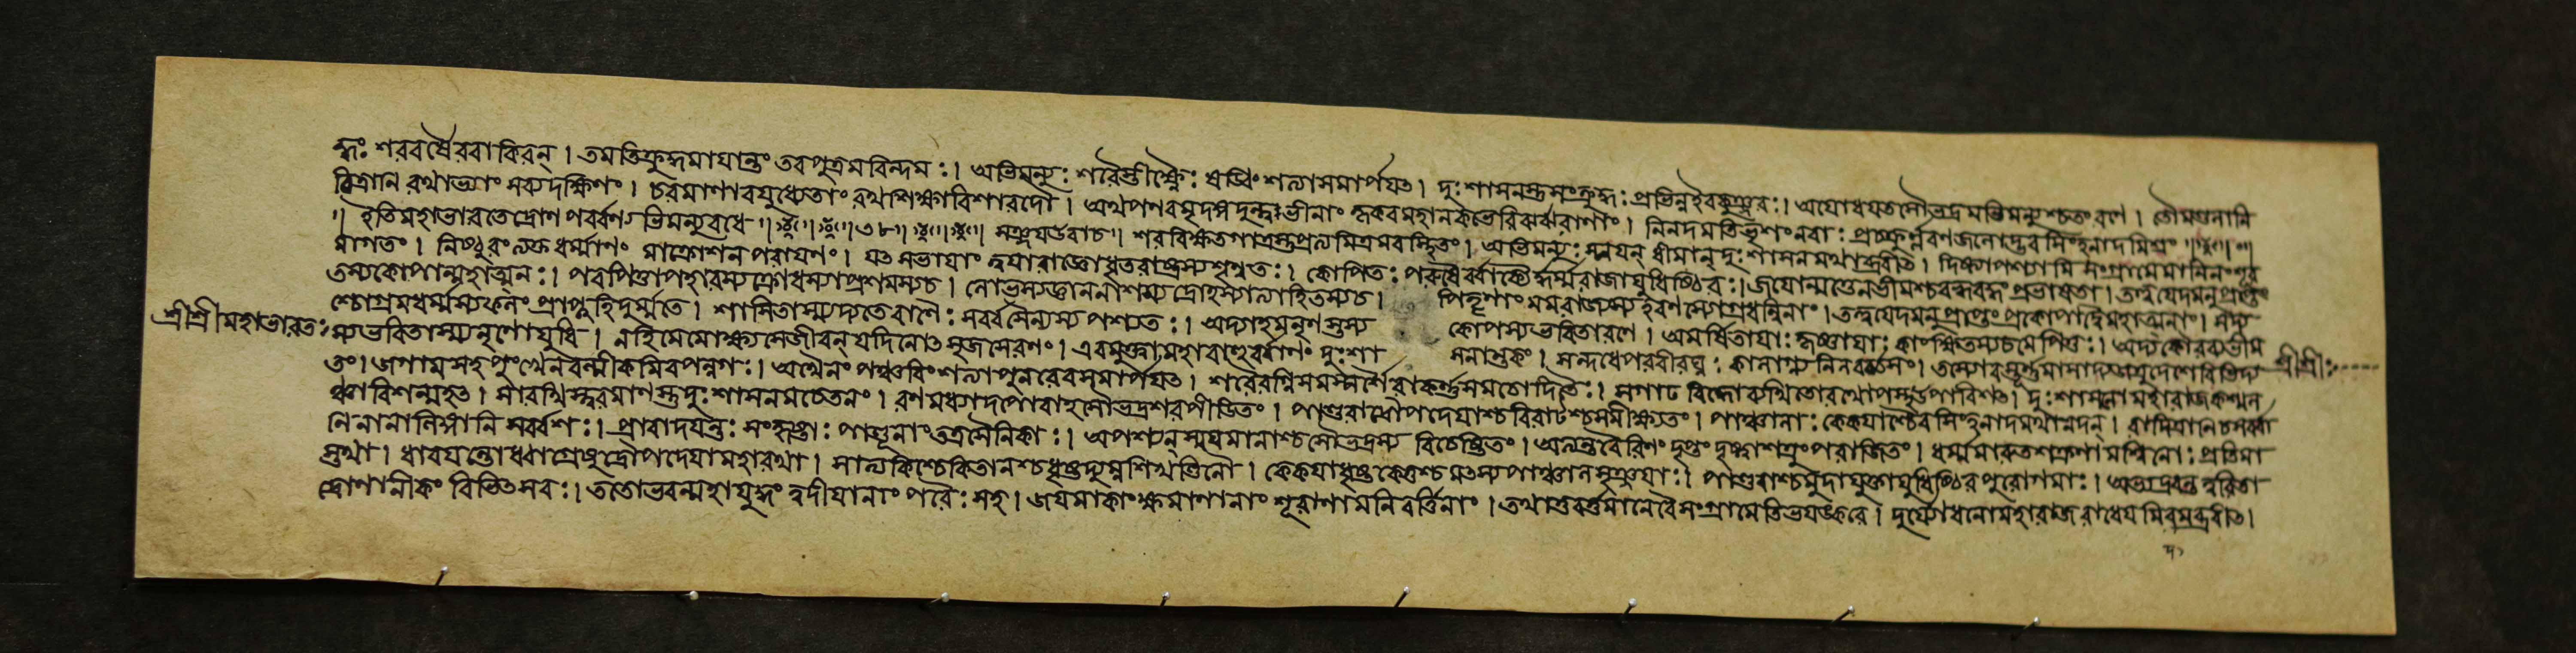 দ্ধঃ শরবর্ষৈরবাকিরন্ । তমতিক্রুদ্ধমাযান্তং তবপুত্রমরিন্দমঃ । অভিমন্যুঃ শরৈস্তীক্ষ্ণৈঃ ষড্বিংশত্যাসমার্পযৎ । দুঃশাসনস্তুসংক্রুদ্ধঃ প্রভিন্নইবকুঞ্জরঃ । অযোধযতসৌভদ্রমভিমন্যুশ্চতংরণে । তৌমণ্ডলানি
বিত্রাণি রথাভ্যাং সব্যদক্ষিণং । চরমাণাবযুধ্যেতাং রথশিক্ষাবিশারদৌ । অথপণবমৃদঙ্গদুন্দুভীনাং কৃকবমহানকভেরিঝর্ঝরাণাং । নিনদমতিভৃশংনরাঃ প্রচক্রুর্লবণজলোদ্ভবসিংহনাদমিশ্রং
॥ ইতিমহাভারতেদ্রোণপর্বণ্যভিমন্যুবধে ॥ ৩৮ ॥ সঞ্জযউবাচ ॥ শরবিক্ষতগাত্রস্তুপ্রত্যমিত্রমবস্থিতং । অভিমন্যুঃ স্মযন্ ধীমান্ দুঃশাসনমথাব্রবীৎ । দিষ্ট্যাপশ্যামিসংগ্রামেমানিনংশূর
মাগতং । নিষ্ঠুরংত্যক্তধর্ম্মাণং মাক্রোশনপরাযণং । যৎসভাযাং ত্বযারাজ্ঞোধৃতরাষ্ট্রস্যশৃণ্বতঃ । কোপিতঃ পরুষৈর্বাক্যৈর্দ্ধর্ম্মরাজোযুধিষ্ঠিরঃ । জযোন্মত্তেনভীমশ্চবহ্ববদ্ধংপ্রভাষতা । তত্ত্বযেদমনুপ্রাপ্তং
তস্যকোপান্মহাত্মনঃ । পরপিণ্ডাপহারস্যক্রোধস্যাপ্রশমস্যচ । লোভস্যজ্ঞাননাশস্যদ্রোহস্যাত্যাহিতস্যচ । পিতৄণাং মমরাজ্যস্যহরণস্যোগ্রধন্বিনাং । তত্ত্বযেদমনুপ্রাপ্তংপ্রকোপাদ্বৈমহাত্মনাং । সদ্য
শ্চোগ্রমধর্ম্মস্যফলং প্রাপ্নুহিদুর্ম্মতে । শাসিতাস্ম্যদ্যতেবাণৈঃ সর্বসৈন্যস্যপশ্যতঃ । অদ্যাহমনৃণস্তস্য কোপস্যভবিতারণে । অমর্ষিতাযাঃ কৃষ্ণাযাঃ কাংক্ষিতস্যচমেপিতুঃ । অদ্যকৌরব্যভীম
শ্রীশ্রীমহাভারতঃ
স্যভবিতাস্ম্যনৃণোযুধি । নহিমেমোক্ষ্যসেজীবন্যদিনোৎসৃজসেরণং । এবমুক্ত্বামহাবাহুর্বাণং দুঃশা সনান্তকং । সন্দধেপরবীরঘ্নঃ কালাগ্ন্যনিলবর্চসং ।
শ্রীশ্রীঃ
তং । জগামসহপুংখেনবল্মীকমিবপন্নগঃ । অথৈনং পঞ্চবিংশত্যাপুনরেবসমার্পযৎ । শরৈরগ্নিসমস্পর্শৈরাকর্ণসমচোদিতৈঃ । সগাঢবিদ্ধোব্যথিতোরথোপস্থউপাবিশৎ । দুঃশাসনোমহারাজকশ্মল
ঞ্চাবিশন্মহৎ । সারথিস্ত্বরমাণস্তুদুঃশাসনমচেতনং । রণমধ্যাদপোবাহসৌভদ্রশরপীডিতং । পাণ্ডবাদ্রৌপদেযাশ্চবিরাটশ্চসমীক্ষ্যতং । পাঞ্চালাঃ কেকযাশ্চৈবসিংহনাদমথানদন্ । বাদিত্রাণিচসর্বা
ণিনানালিঙ্গানিসর্বশঃ । প্রাবাদযন্তঃ সংহৃষ্টাঃ পাণ্ডূনাংতত্রসৈনিকাঃ । অপশ্যন্স্মযমানাশ্চসৌভদ্রস্য বিচেষ্টিতং । অত্যন্তবৈরিণং দৃপ্তং দৃষ্ট্বাশত্রুংপরাজিতং । ধর্ম্মমারুতশক্রাণামশ্বিনোঃ প্রতিমা
স্তথা । ধারযন্তোধ্বজাগ্রেষুদ্রৌপদেযামহারথা । সাত্যকিশ্চেকিতানশ্চধৃষ্টদ্যুম্নশিখণ্ডিনৌ । কেকযাধৃষ্টকেতুশ্চমৎস্যপাঞ্চালসৃঞ্জযাঃ । পাণ্ডবাশ্চমুদাযুক্তাযুধিষ্ঠিরপুরোগমাঃ । অভ্যদ্রবন্তত্বরিতা
দ্রোণানীকং বিভিৎসবঃ । ততোভবন্মহাযুদ্ধং ত্বদীযানাং পরৈঃ সহ । জযমাকাংক্ষমাণানাং শূরাণামনিবর্ত্তিনাং । তথাতুবর্ত্তমানেবৈসংগ্রামেতিভযঙ্করে । দুর্যোধনোমহারাজরাধেযমিদমব্রবীৎ ।